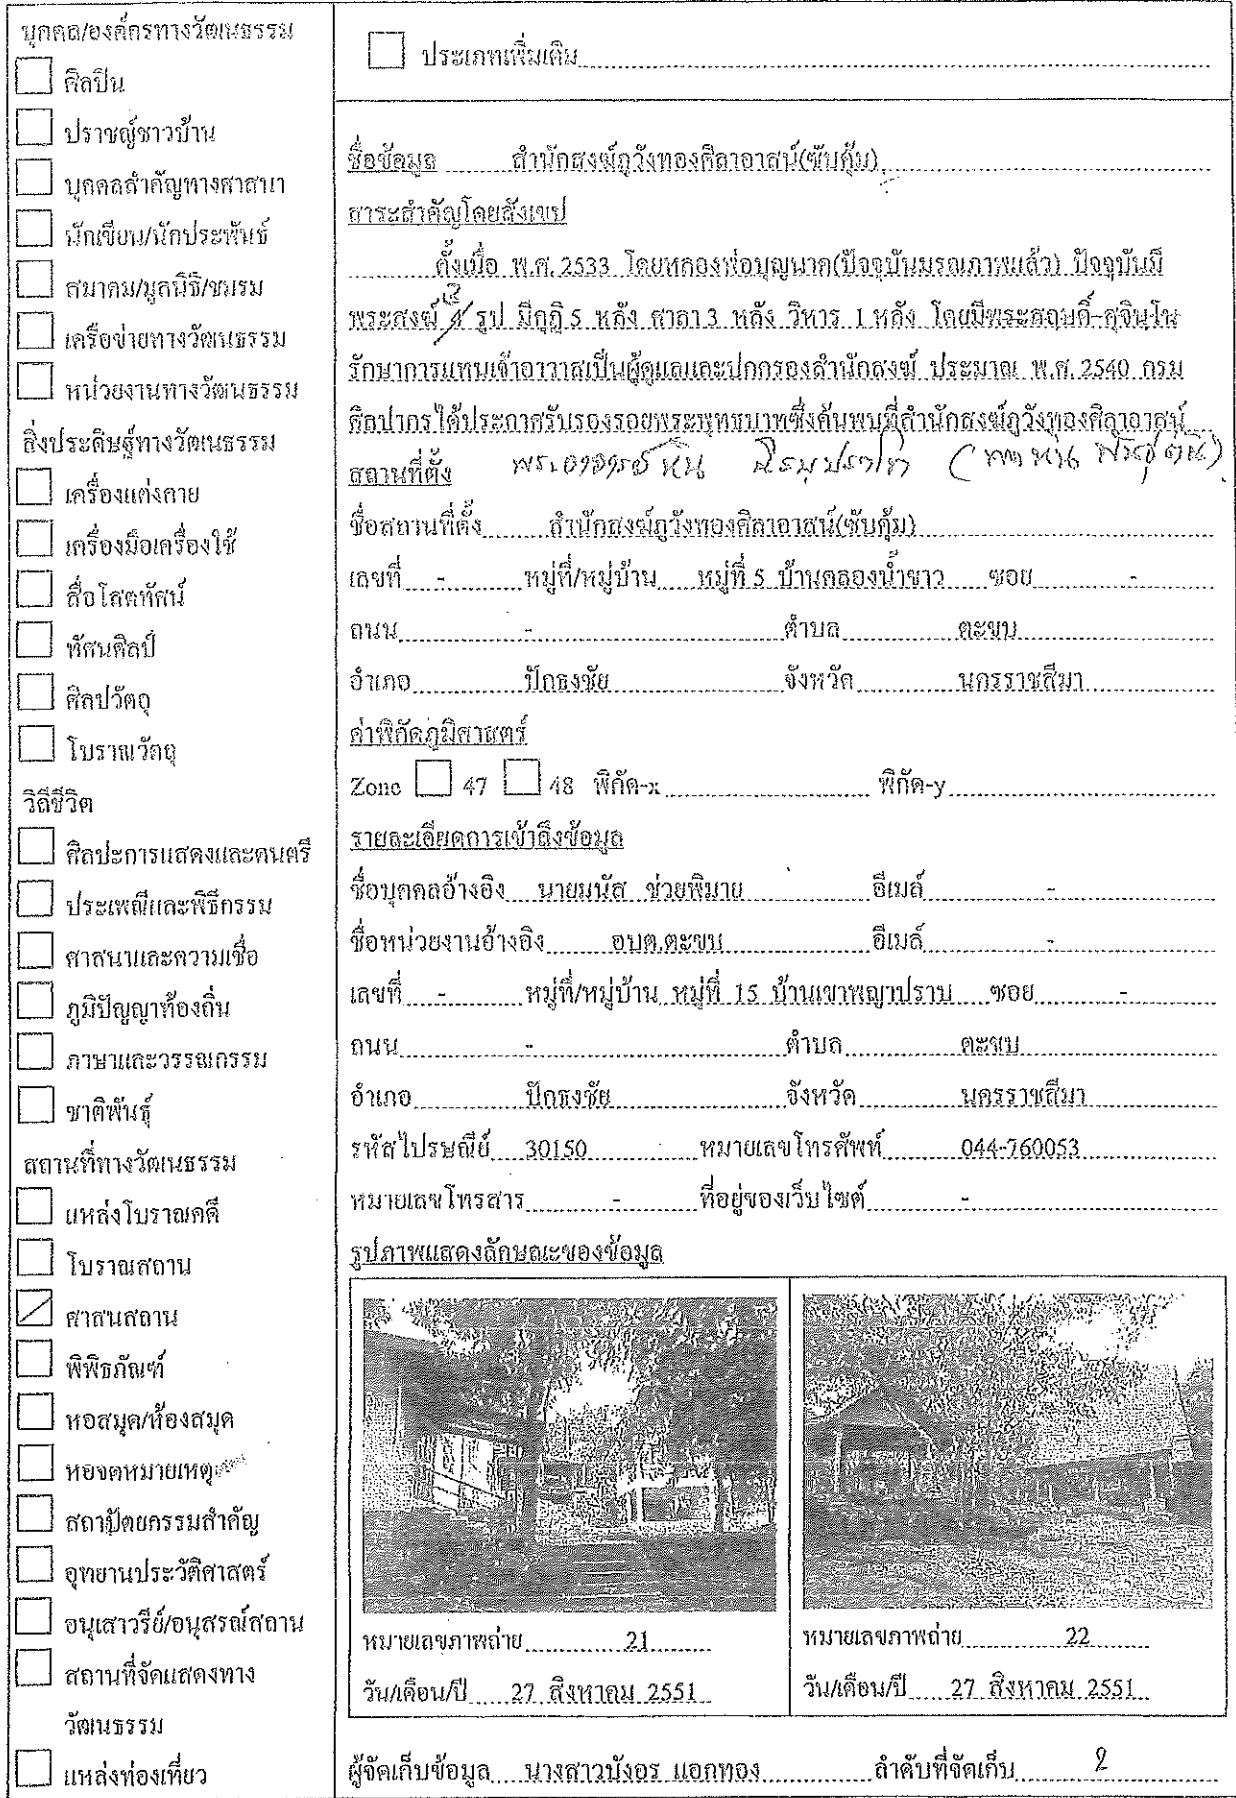 บุคคล/องค์กรทางวัฒนธรรม
ศิลปิน
ปราชญ์ชาวบ้าน
บุคคลสำคัญทางศาสนา
นักเขียน/นักประพันธ์
สมาคม/มูลนิธิ/ชมรม
เครือข่ายทางวัฒนธรรม
หน่วยงานทางวัฒนธรรม
สิ่งประดิษฐ์ทางวัฒนธรรม
เครื่องแต่งกาย
เครื่องมือเครื่องใช้
สื่อโสตทัศน์
ทัศนศิลป์
ศิลปวัตถุ
โบราณวัตถุ
วิถีชีวิต
ศิลปะการแสดงและดนตรี
ประเพณีและพิธีกรรม
ศาสนาและความเชื่อ
ภูมิปัญญาท้องถิ่น
ภาษาและวรรณกรรม
ชาติพันธุ์
สถานที่ทางวัฒนธรรม
แหล่งโบราณคดี
โบราณสถาน
ศาสนสถาน
พิพิธภัณฑ์
หอสมุด/ห้องสมุด
หอจดหมายเหตุ
สถาปัตยกรรมสำคัญ
อุทยานประวัติศาสตร์
อนุเสาวรีย์/อนุสรณ์สถาน
สถานที่จัดแสดงทาง
วัฒนธรรม
แหล่งท่องเที่ยว
ประเภทเพิ่มเติม
ชื่อข้อมูล สำนักสงฆ์ภูวังทองศิลาอาสน์(ซับคุ้ม)
สาระสำคัญโดยสังเขป
ตั้งเมื่อ พ.ศ. 2533 โดยหลวงพ่อบุญนาค(ปัจจุบันมรณภาพแล้ว) ปัจจุบันมี
พระสงฆ์ 4 รูป มีกุฏิ 5 หลัง ศาลา 3 หลัง วิหาร 1 หลัง โดยมีพระสฤบดิ์ สุจินโน
รักษาการแทนเจ้าอาวาสเป็นผู้ดูแลและปกกรองสำนักสงฆ์ ประมาณ พ.ศ. 2540 กรม
ศิลปากรได้ประกาศรับรองรอยพระพุทธบาทซึ่งค้นพบที่สำนักสงฆ์ภูวังทองศิลาอาสน์
พระอาจารย์
สถานที่ตั้ง
ชื่อสถานที่ตั้ง สำนักสงฆ์ภูวังทองศิลาอาสน์(ซับคุ้ม)
เลขที่ - หมู่ที่/หมู่บ้าน หมู่ที่ 5 บ้านคลองน้ำขาว ซอย -
ถนน - ตำบล ตะขบ
อำเภอ ปักธงชัย จังหวัด นครราชสีมา
ค่าพิกัดภูมิศาสตร์
Zone 47 48 พิกัด-x พิกัด-y
รายละเอียดการเข้าถึงข้อมูล
ชื่อบุคคลอ้างอิง นายมนัส ช่วยพิมาย อีเมล์ -
ชื่อหน่วยงานอ้างอิง อบต.ตะขบ อีเมล์ -
เลขที่ - หมู่ที่/หมู่บ้าน หมู่ที่ 15 บ้านเขาพญาปราบ ซอย -
ถนน - ตำบล ตะขบ
อำเภอ ปักธงชัย จังหวัด นครราชสีมา
รหัสไปรษณีย์ 30150 หมายเลขโทรศัพท์ 044-760053
หมายเลขโทรสาร - ที่อยู่ของเว็บไซต์ -
รูปภาพแสดงลักษณะของข้อมูล
หมายเลขภาพถ่าย 21
วัน/เดือน/ปี 27 สิงหาคม 2551
หมายเลขภาพถ่าย 22
วัน/เดือน/ปี 27 สิงหาคม 2551
ผู้จัดเก็บข้อมูล นางสาวบังอร แอกทอง ลำดับที่จัดเก็บ 2